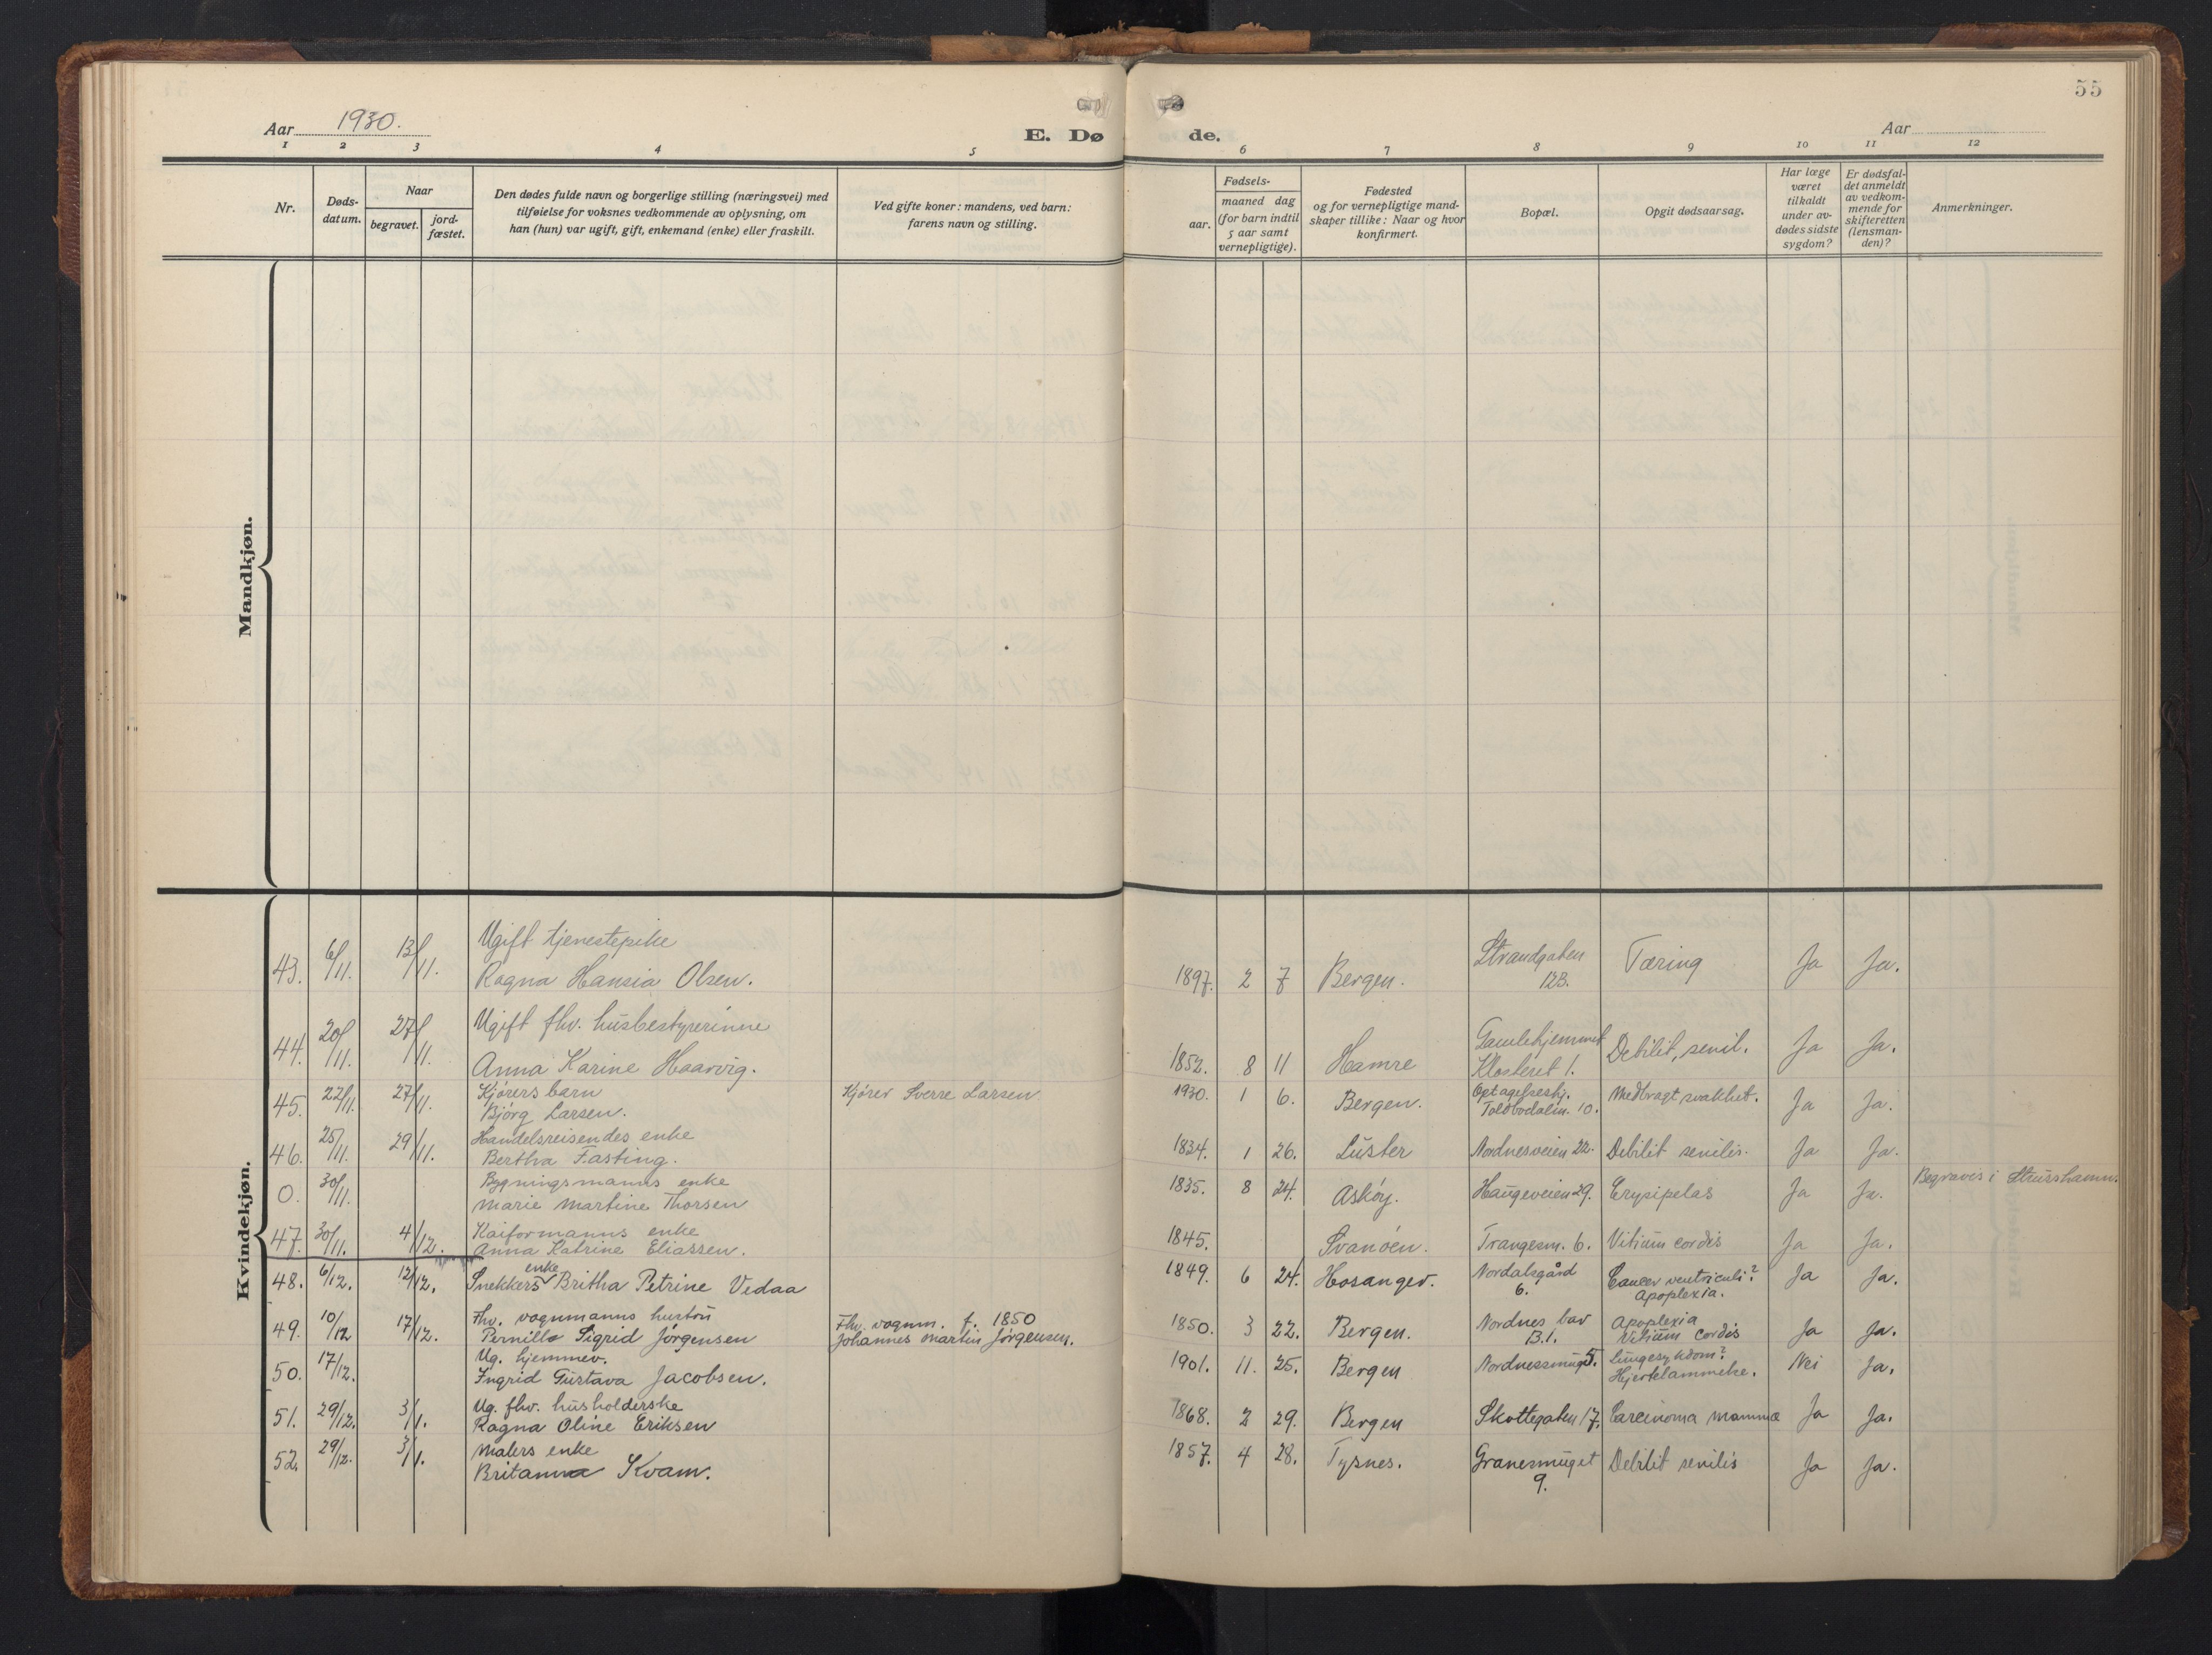 55
Aar 1930.
E. Dø
de.
Aar
1 2 3 4 5 6 7 8 9 10 11 12
Nr.
Døds-
datum.
Naar
begravet.
jord-
fæstet.
Den dødes fulde navn og borgerlige stilling (næringsvei) med
tilføielse for voksnes vedkommende av oplysning, om
han (hun) var ugift, gift, enkemand (enke) eller fraskilt.
Ved gifte koner: mandens, ved barn:
farens navn og stilling.
aar.
Fødsels-
maaned dag
(for barn indtil
5 aar samt
vernepligtige).
Fødested
og for vernepligtige mand-
skaper tillike: Naar og hvor
konfirmert.
Bopæl.
Opgit dødsaarsag.
Har læge
været
tilkaldt
under av-
dødes sidste
sygdom?
Er dødsfal-
det anmeldt
av vedkom-
mende for
skifteretten
(lensman-
den)?
Anmerkninger.
Mandkjøn.
Kvindekjøn.
Ugift tjenestepike Strandgaten
43. 6/11. 13/11. Ragna Hansia Olsen. 1897. 2 7 Bergen. 12B. Tæring Ja Ja.
Ugift fhv. husbestyrerinne Gamlehjemmet
44. 20/11. 27/11. Anna Karine Haarvig. 1852. 8 11 Hamre Klosteret 1. Debilit, senil. Ja Ja.
Kjørers barn Kjører Sverre Larsen Optagelseshj.
45. 22/11. 27/11. Bjørg Larsen. 1930. 1 6. Bergen. Toldbodalm. 10. Medbragt svakhet. Ja Ja.
Handelsreisendes enke
46. 25/11. 29/11. Bertha Fasting. 1834. 1 26. Luster Nordnesveien 22. Debilit senilis. Ja Ja.
Bygningsmanns enke
0. 30/11. Marie Martine Thorsen 1835. 8 24. Askøy. Haugeveien 29. Erysipelas Ja Ja. Begraves i Strusshamn.
Kaiformanns enke
47. 30/11. 4/12. Anna Katrine Eliassen. 1845. Svanøen. Trangesm. 6. Vitium cordis Ja Ja.
enke
48. 6/12. 12/12. Snekkers Britha Petrine Vedaa 1849. 6 24. Hosanger. Nordalsgård 6. Cancer ventriculi? Apoplexia. Ja Ja.
Fhv. vognmanns hustru Fhv. vognm. f. 1850 Nordnes bav Apoplexia
49. 10/12 17/12. Pernille Sigrid Jørgensen Johannes Martin Jørgensen. 1850. 3 22. Bergen. B.1. Vitium cordis Ja Ja.
Ug. hjemmev. Lungesykdom?
50. 17/12. Ingrid Gustava Jacobsen. 1901. 11. 25. Bergen Nordnessmug 5. Hjertelammelse. Nei Ja.
Ug. fhv. husholderske
51. 29/12. 3/1. Ragna Oline Eriksen 1868. 2 29. Bergen Skottegaten 17. Carcinoma mammæ Ja Ja.
Malers enke Granesmuget
52. 29/12. 3/1. Britanna Kvam. 1857. 4 28. Tysnes. 9. Debilit senilis Ja Ja.